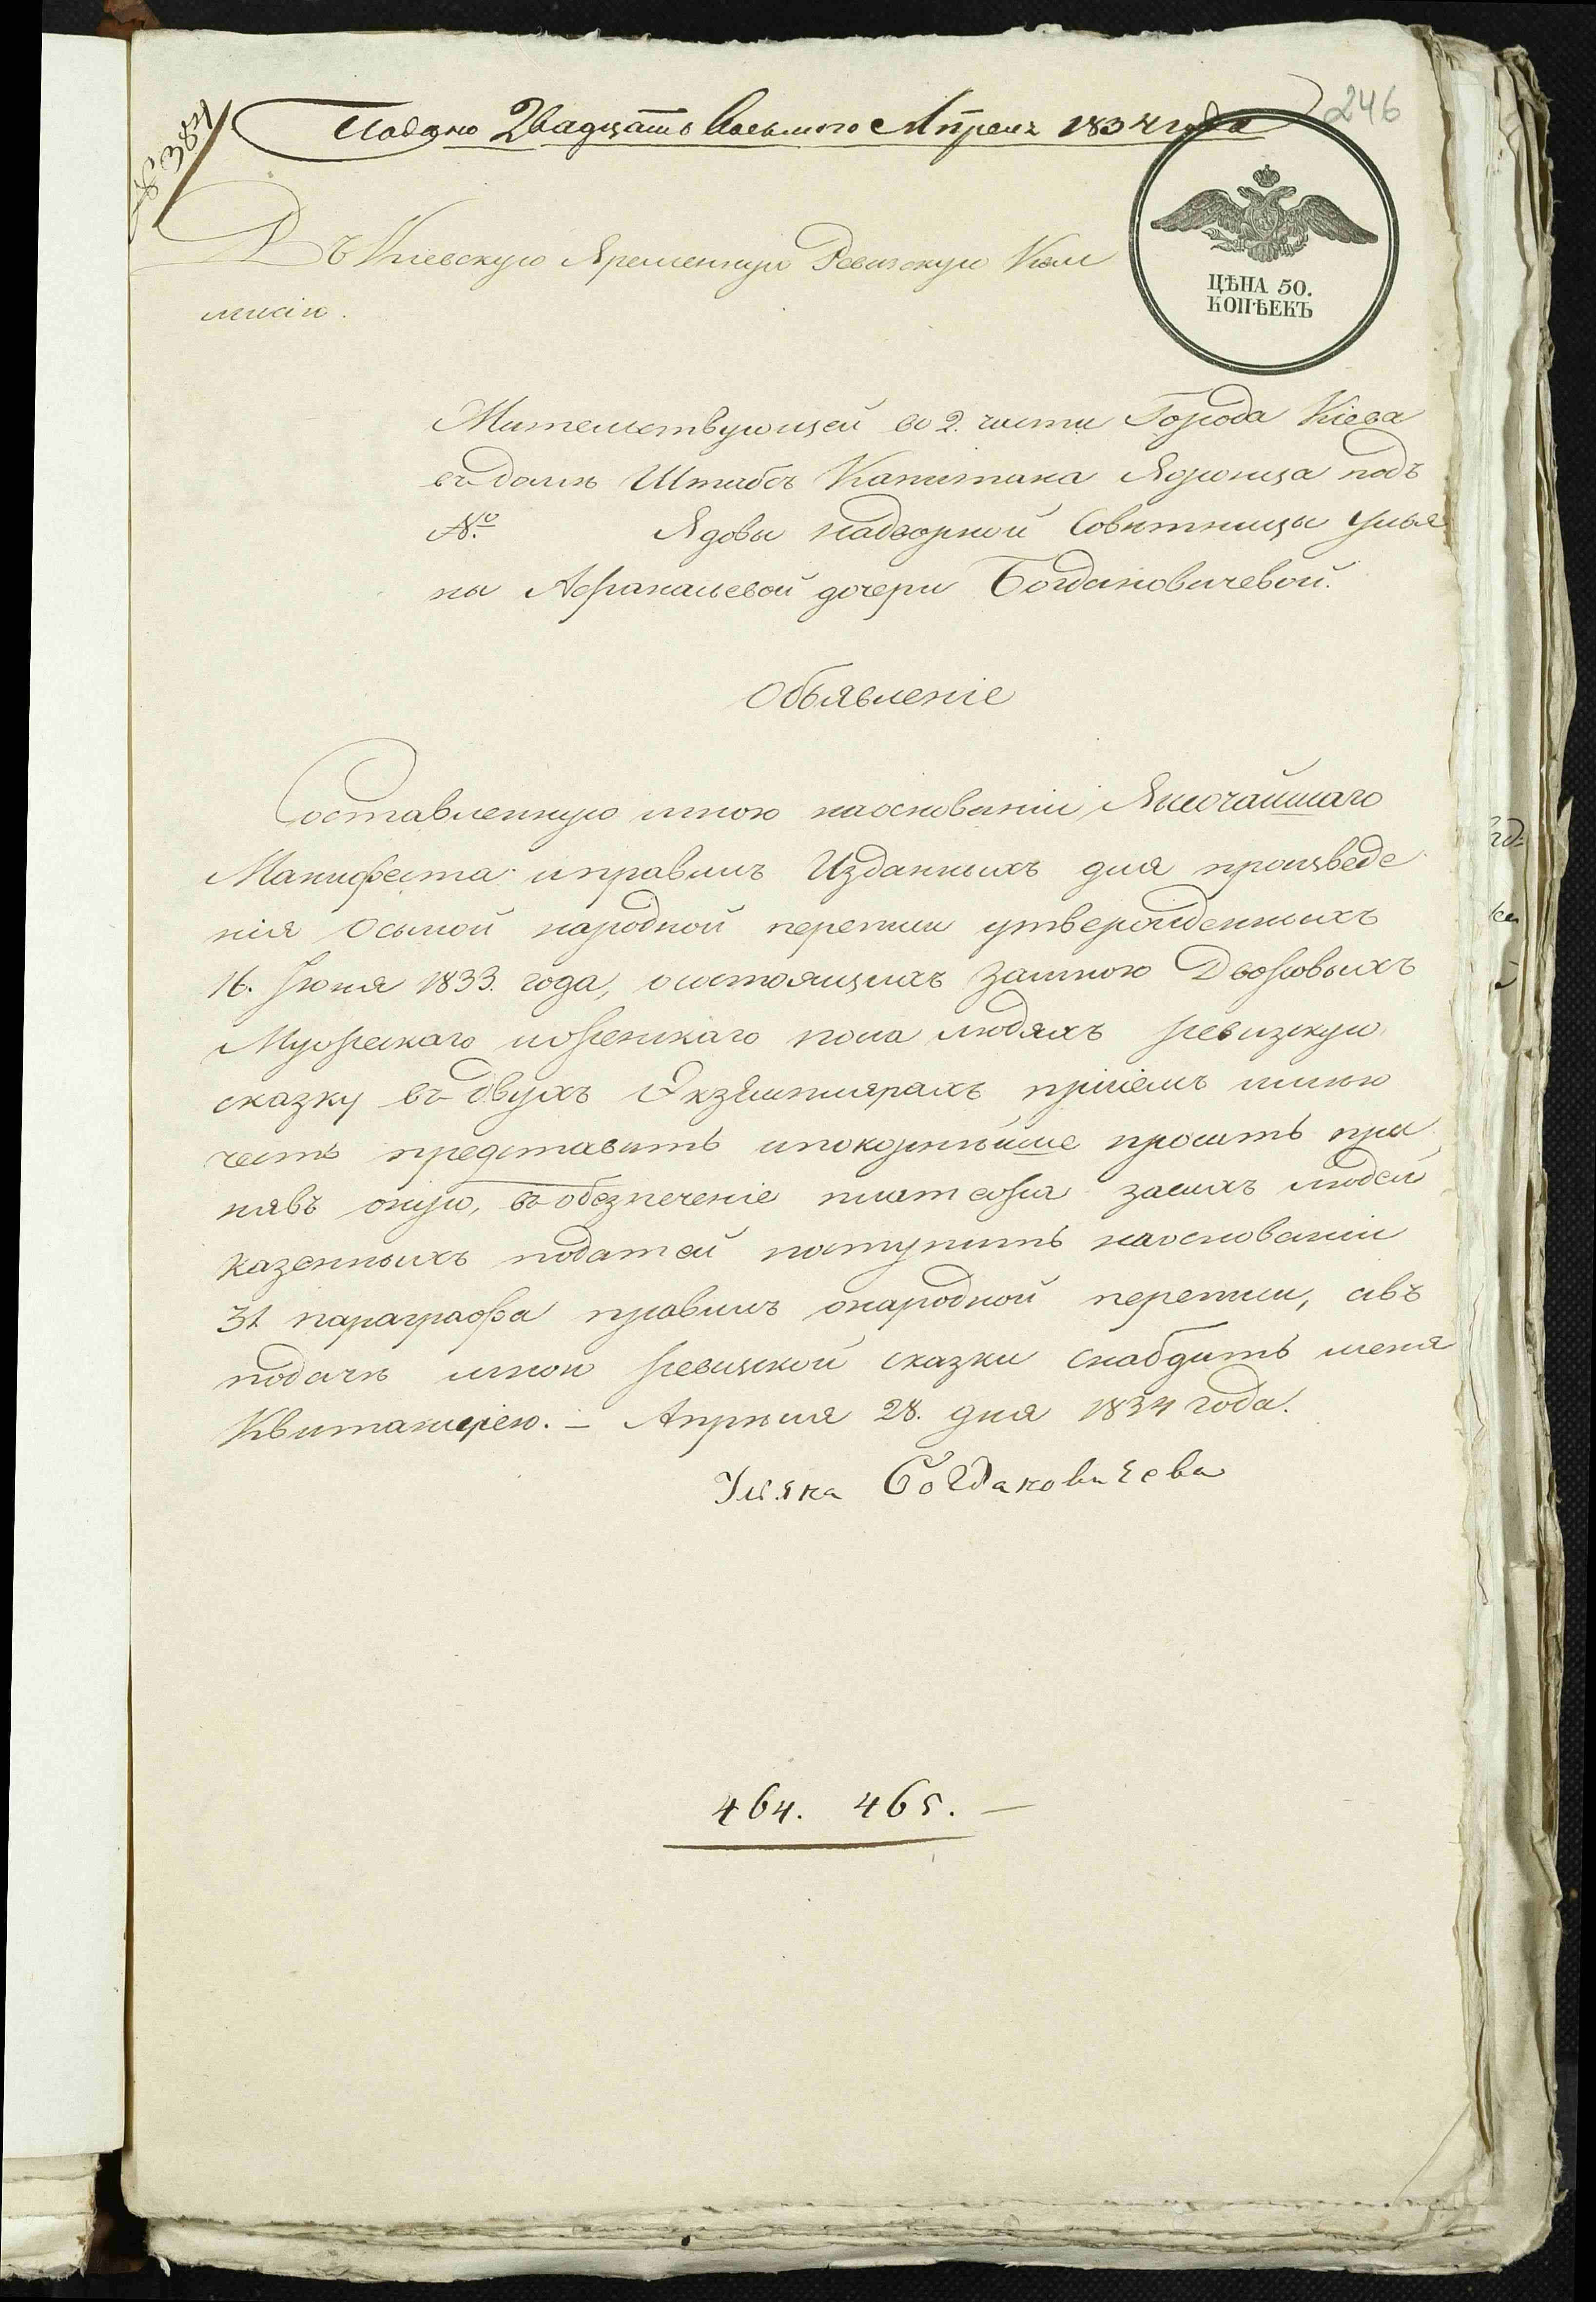 246
№ 384
Подано Двадцать Восьмого Апреля 1834 года
ЦѢНА 50.
КОПѢЕКЪ
Въ Киевскую Временную Ревизскую Ком
мисію.
Жительствующей во 2. части Города Кіева
въ домѣ Штабсъ Капитана подъ
№. Вдовы надворной Совѣтницы Улья
ны Афанасьевой дочери Богдановичевой.
Объявленіе
Составленную мною наосновании Высочайшаго
Манифеста иправилъ Изданныхъ для произведе
нія Осьмой народной переписи утвержденныхъ
16. Іюня 1833. года, осостоящихъ замною Дворовыхъ
Мужескаго иженскаго пола людяхъ ревизскую
сказку въ двухъ Экземплярахъ присемъ имѣю
честь представить ипокорнѣйше просить при
нявъ оную, въ обезпеченіе платежа засихъ людей
казенныхъ податей поступить наоснованіи
31 параграфа правилъ онародной переписи, авъ
подачѣ мною ревизской сказки снабдить меня
Квитанціею. – Апрѣля 28. дня 1834 года.
Ульяна Богдановичева
464. 465. —